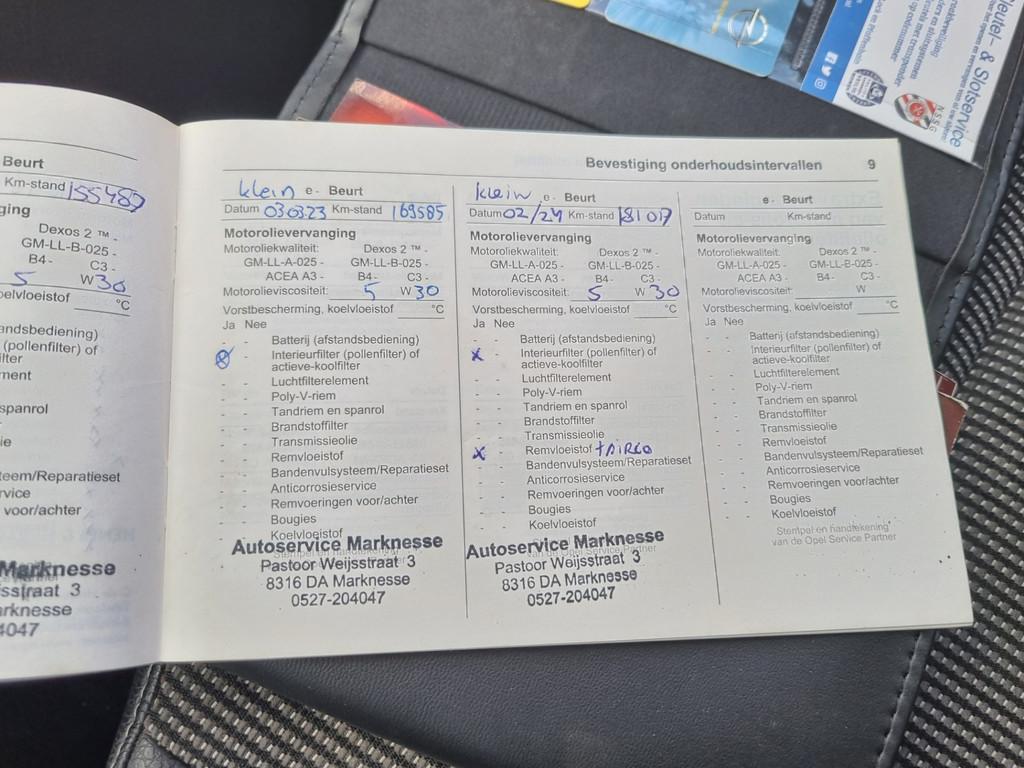 Sleutel- & Slotservice
N.S.S.G
Bevestiging onderhoudsintervallen 9
Beurt
Km-stand 155489
Dexos 2 ™ -
GM-LL-B-025 -
B4- C3 -
5 W 30
°C
(pollenfilter) of
spanrol
voor/achter
Marknesse
3
4047
klein e - Beurt
Datum 03 03 23 Km-stand 169585
Motorolievervanging
Motoroliekwaliteit: Dexos 2 ™ -
GM-LL-A-025 - GM-LL-B-025 -
ACEA A3 - B4- C3 -
Motorolieviscositeit: 5 W 30
Vorstbescherming, koelvloeistof °C
Ja Nee
- - Batterij (afstandsbediening)
x - Interieurfilter (pollenfilter) of
actieve-koolfilter
- - Luchtfilterelement
- - Poly-V-riem
- - Tandriem en spanrol
- - Brandstoffilter
- - Transmissieolie
- - Remvloeistof
- - Bandenvulsysteem/Reparatieset
- - Anticorrosieservice
- - Remvoeringen voor/achter
- - Bougies
- - Koelvloeistof
Autoservice Marknesse
Pastoor Weijsstraat 3
8316 DA Marknesse
0527-204047
klein e - Beurt
Datum 02/24 Km-stand 181017
Motorolievervanging
Motoroliekwaliteit: Dexos 2 ™ -
GM-LL-A-025 - GM-LL-B-025 -
ACEA A3 - B4- C3-
Motorolieviscositeit: 5 W 30
Vorstbescherming, koelvloeistof °C
Ja Nee
- - Batterij (afstandsbediening)
x - Interieurfilter (pollenfilter) of
actieve-koolfilter
- - Luchtfilterelement
- - Poly-V-riem
- - Tandriem en spanrol
- - Brandstoffilter
- - Transmissieolie
x - Remvloeistof + AIRCO
- - Bandenvulsysteem/Reparatieset
- - Anticorrosieservice
- - Remvoeringen voor/achter
- - Bougies
- - Koelvloeistof
Autoservice Marknesse
van de Opel Service Partner
Pastoor Weijsstraat 3
8316 DA Marknesse
0527-204047
e - Beurt
Datum Km-stand
Motorolievervanging
Motoroliekwaliteit: Dexos 2 ™ -
GM-LL-A-025 - GM-LL-B-025 -
ACEA A3 - B4- C3 -
Motorolieviscositeit: W
Vorstbescherming, koelvloeistof °C
Ja Nee
- - Batterij (afstandsbediening)
- - Interieurfilter (pollenfilter) of
actieve-koolfilter
- - Luchtfilterelement
- - Poly-V-riem
- - Tandriem en spanrol
- - Brandstoffilter
- - Transmissieolie
- - Remvloeistof
- - Bandenvulsysteem/Reparatieset
- - Anticorrosieservice
- - Remvoeringen voor/achter
- - Bougies
- - Koelvloeistof
Stempel en handtekening
van de Opel Service Partner